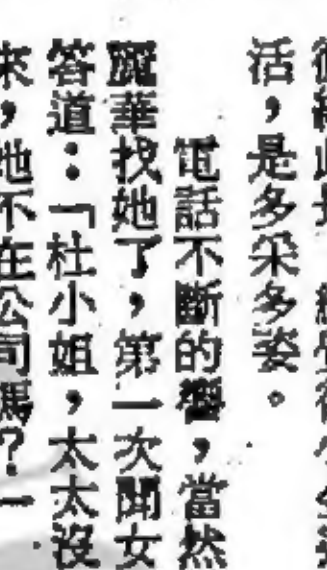 活，是多采多姿。
電話不斷的響，當然
魔華找她了，第一次聞女
答道：「杜小姐，太太沒
來，她不在公司嗎？」